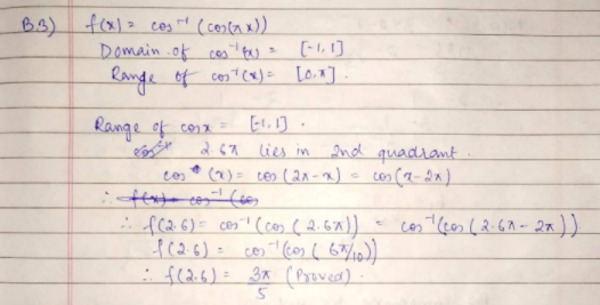 B.3) f(x) = cos⁻¹ (cos(πx))
Domain of cos⁻¹(x) = [-1, 1]
Range of cos⁻¹(x) = [0, π].
Range of cos x = [-1, 1].
2.6π lies in 2nd quadrant.
cos (x) = cos (2π-x) = cos(x-2π)
∴ f(x) = cos⁻¹ (cos
∴ f(2.6) = cos⁻¹ (cos (2.6π)) = cos⁻¹(cos (2.6π - 2π))
f(2.6) = cos⁻¹(cos (6π/10))
∴ f(2.6) = 3π/5 (Proved).